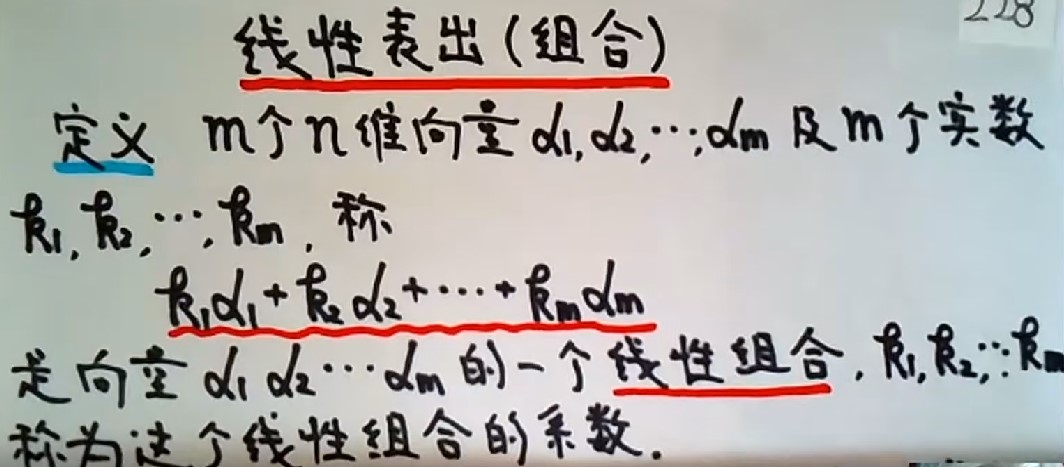 228
线性表出(组合)
定义 m个n维向量α1,α2,…,αm及m个实数
k1,k2,…,km,称
k1α1+k2α2+…+kmαm
是向量α1 α2…αm的一个线性组合,k1,k2,…km
称为这个线性组合的系数.